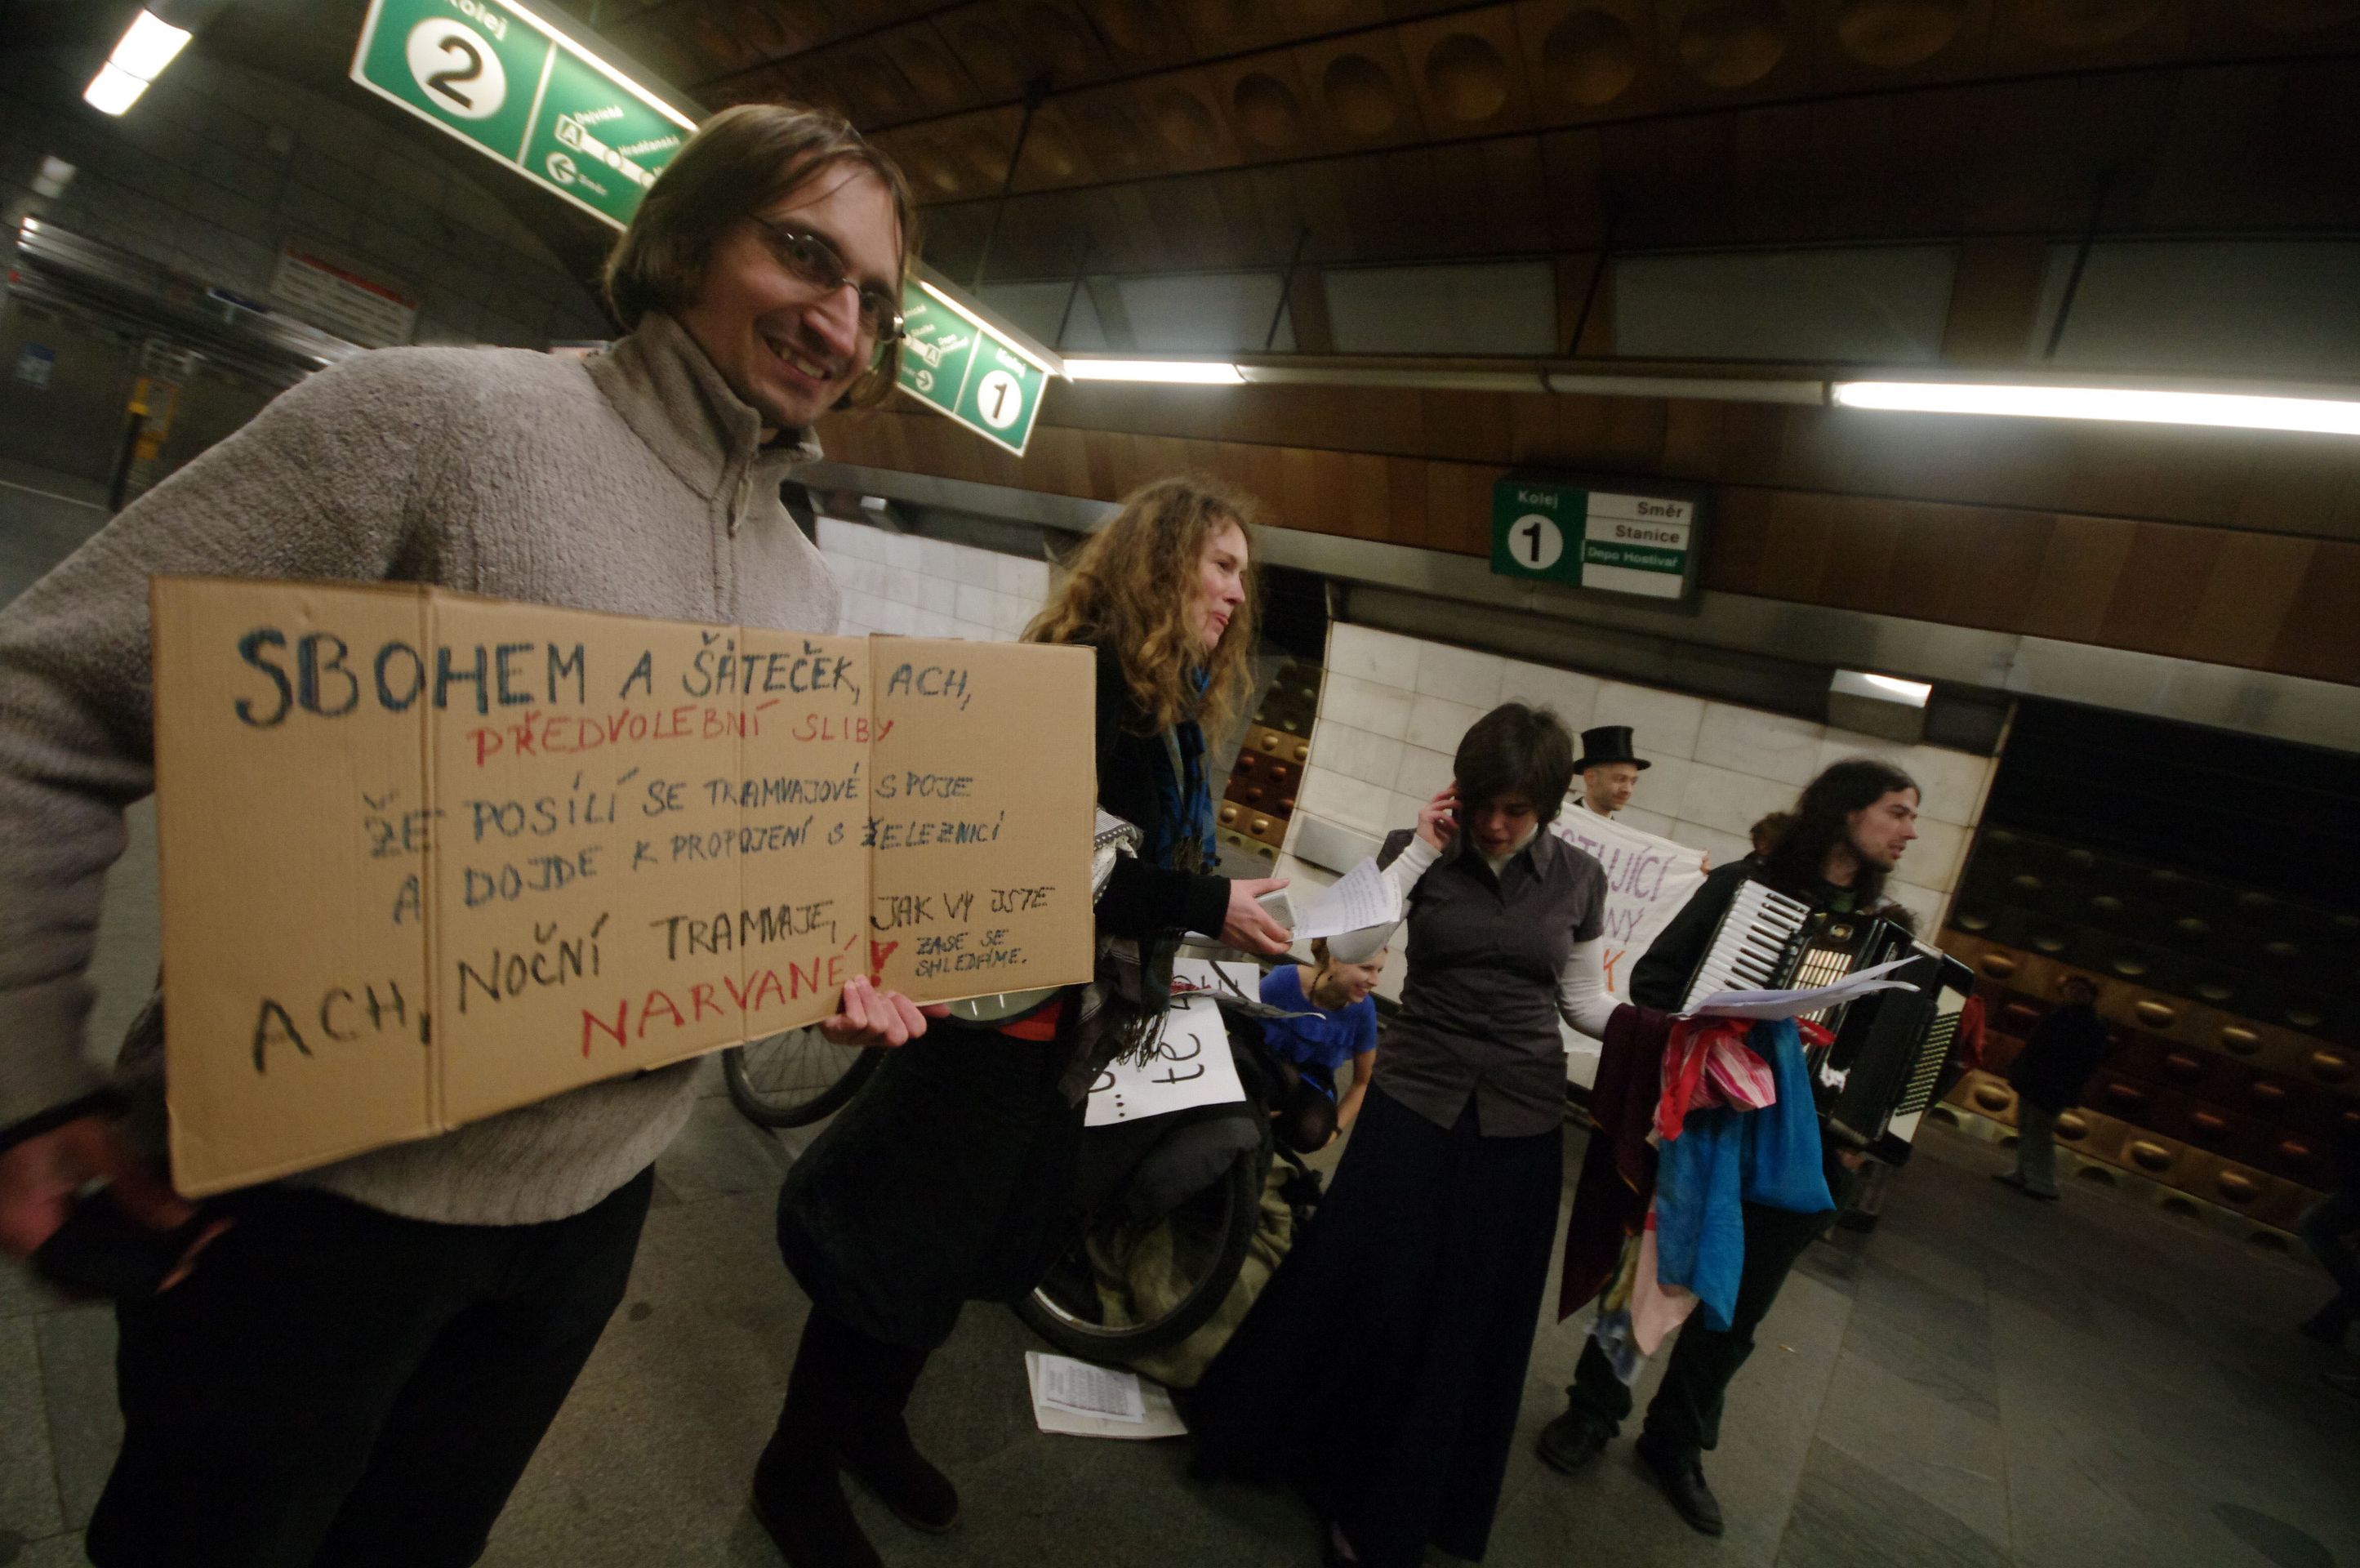 Kolej
2
A
Dejvická
Hradčanská
Směr
A
Kolej
1
Kolej
1
Směr
Stanice
Depo Hostivař
SBOHEM A ŠÁTEČEK, ACH,
PŘEDVOLEBNÍ SLIBY
ŽE POSÍLÍ SE TRAMVAJOVÉ SPOJE
A DOJDE K PROPOJENÍ S ŽELEZNICÍ
ACH, NOČNÍ TRAMVAJE, JAK VY JSTE
NARVANÉ!
ZASE SE
SHLEDÁME.
te
...